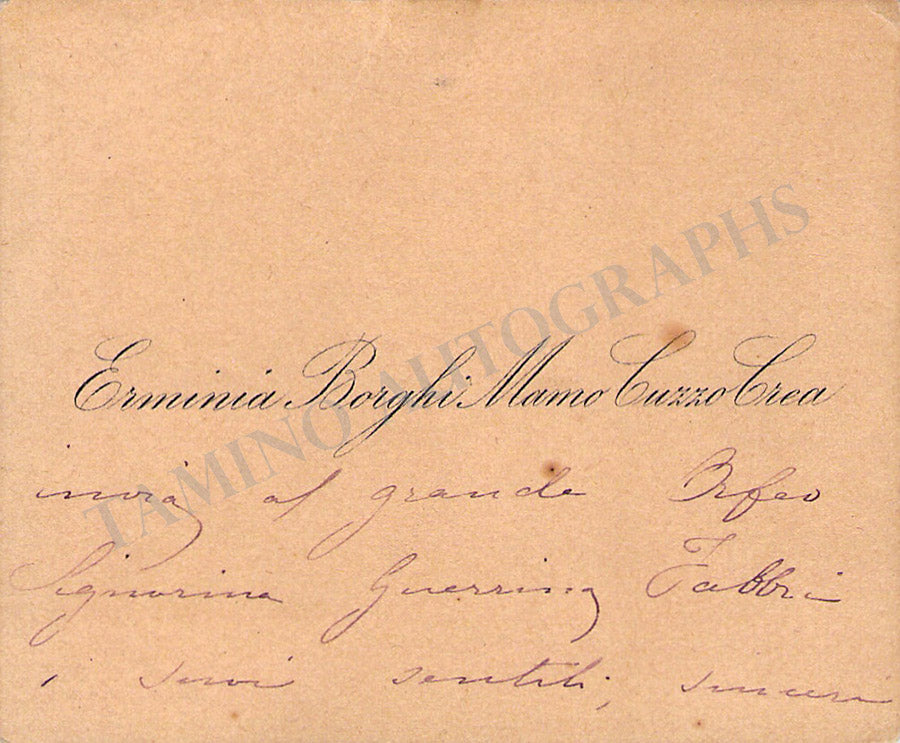 TAMINO AUTOGRAPHS
Erminia Borghi Mamo Cuzzo Crea
invia al grande Orfeo
Signorina Guerrina Fabbri
i suoi sentiti, sinceri